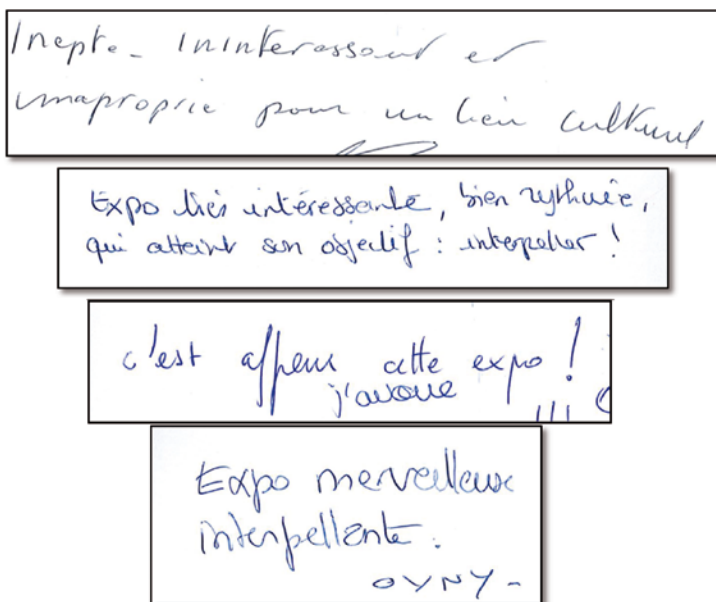 Inepte - Inintéressant et
imaproprie pour un lieu culturel
Expo très intéressante, bien rythmée,
qui atteint son objectif : interpeller !
c'est affreux cette expo !
j'avoue !!!
Expo merveilleux
interpellante.
OYNY -